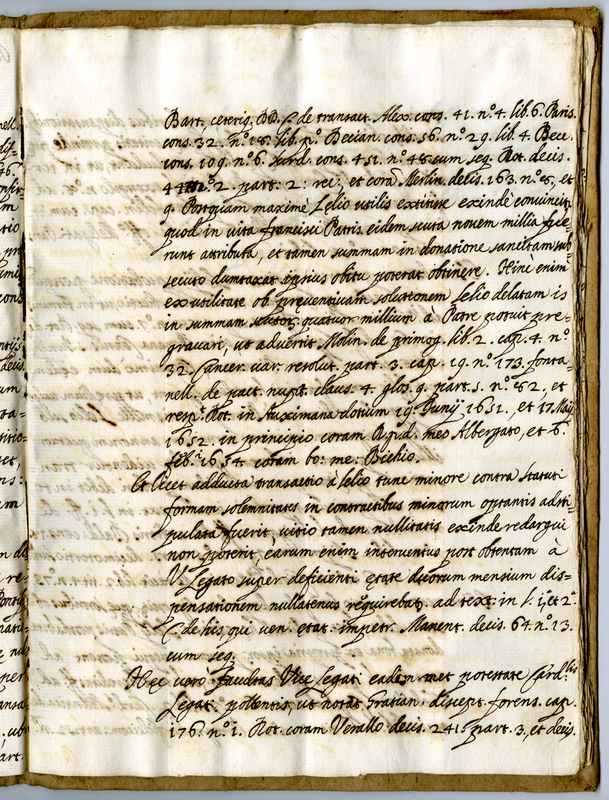 Bart. ceteriq. DD. C. de transact. Alex. cons. 41. n.º 4. lib. 6. Paris.
cons. 32. n.º 18. lib. p.º Becian. cons. 56. n.º 29. lib. 4. Bece.
cons. 109. n.º 6. Surd. cons. 451. n.º 48. cum seq. Rot. decis.
n.º 2. part. 2: rec:, et corã Merlin. decis. 163. n.º 8., et
q. Postquam maxime Lelio utilis extitisse exinde convincit.
quod in vita francisci Patris eidem scuta novem millia fue=
runt attributa, et tamen summam in donatione sancitam sub=
secuto dumtaxat ipsius obitu poterat obtinere. Hinc enim
ex utilitate ob pręventivam solutionem Lelio delatam is
in summam scutor. quatuor millium à Patre potuit prę=
gravari, ut advertit Molin. de primog. lib. 2. cap. 4. n.º
32. Cancer. var. resolut. part. 3. cap. 19. n.º 173. fonta=
nell. de pact. nupt. claus. 4. glos. 9. part. 5. n.º 82, et
resp.t Rot. in Auximana dotium 19. Junij 1651., et 17. Maij
1652. in principio coram R.p.d. meo Albergato, et 6.
feb.r 1654. coram bo: me: Bichio.
Et licet adducta transactio à Lelio tunc minore contra statuti
formam solemnitates in contractibus minorum optantis adsti=
pulata fuerit, vitio tamen nullitatis exinde redargui
non poterit, earum enim interventus post obtentam à
V. Legato super deficienti ętate duorum mensium dis=
pensationem nullatenus requirebat. ad text. in l. i, et 2.ª
C. de his, qui ven. ętat. impetr. Manent. decis. 64. n.º 13.
cum seq.
Hęc vero facultas Vice Legati eadem met potestate Card.lis
Legati pollentis, ut notat Gratian. discept. forens. cap.
176. n.º 1. Rot. coram Verallo decis. 241. part. 3, et decis.